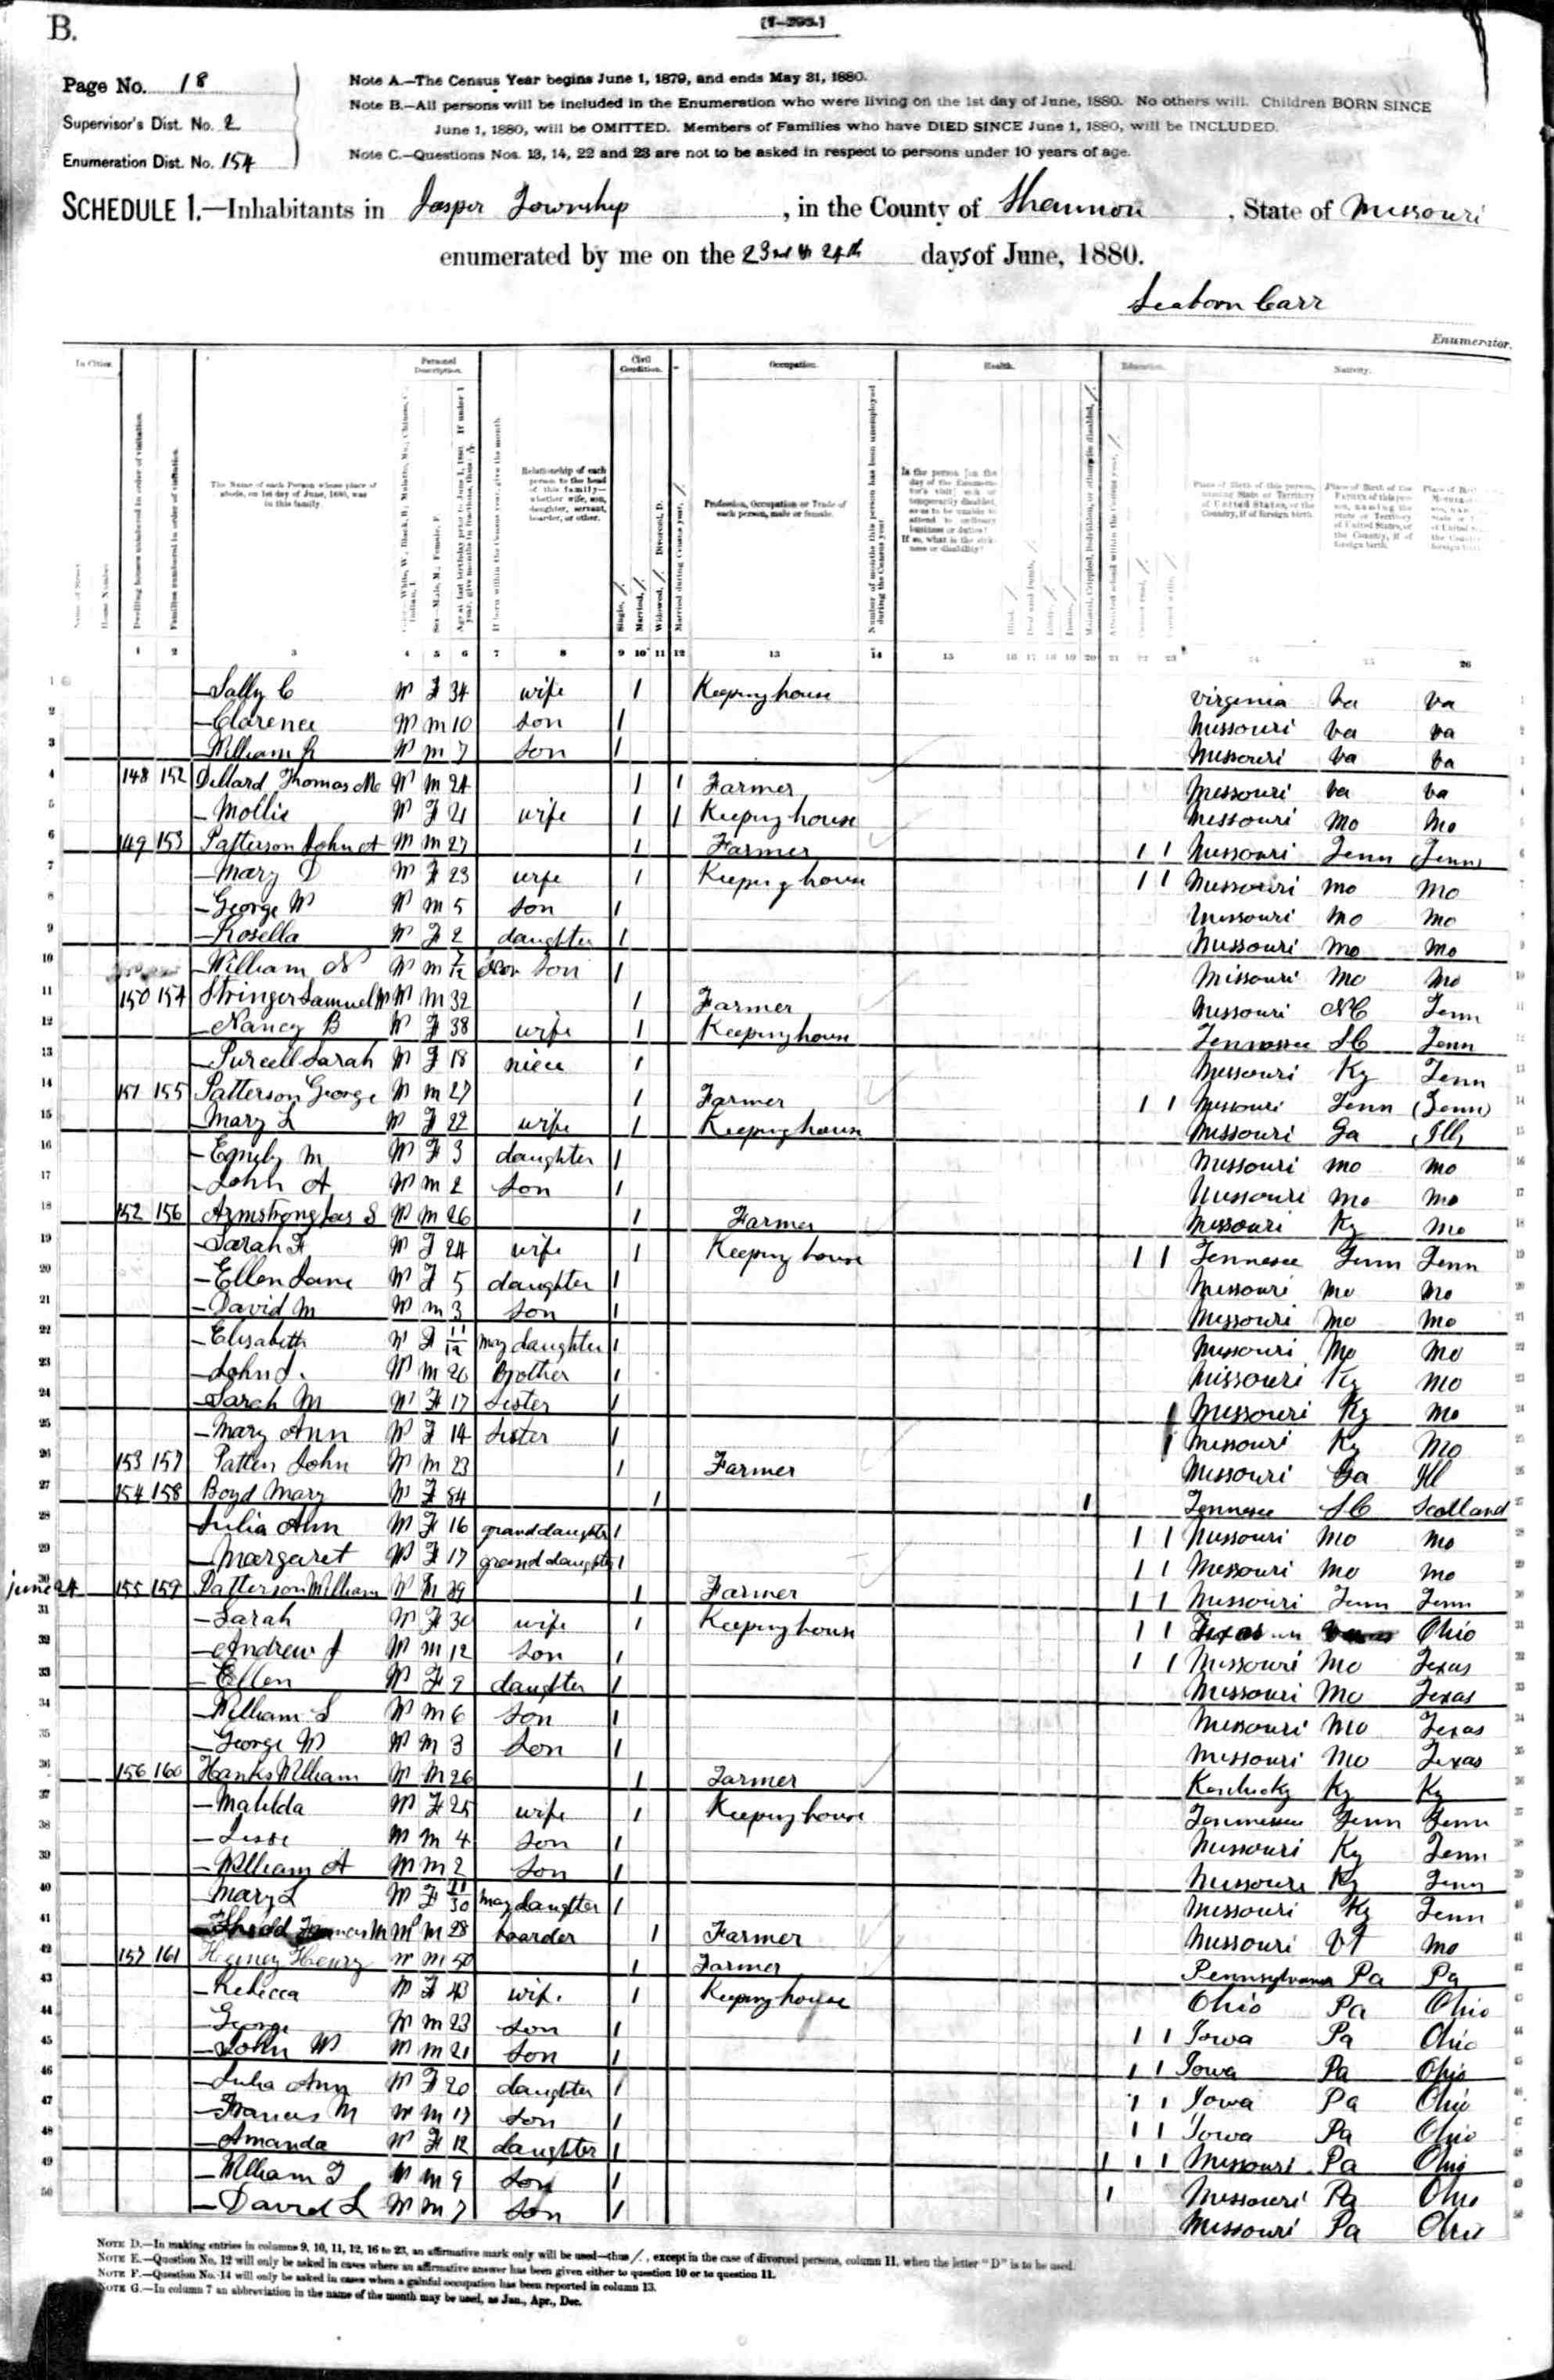 B.
[7-296.]
Page No. 18
Supervisor's Dist. No. 2
Enumeration Dist. No. 154
Note A.—The Census Year begins June 1, 1879, and ends May 31, 1880.
Note B.—All persons will be included in the Enumeration who were living on the 1st day of June, 1880. No others will. Children BORN SINCE
June 1, 1880, will be OMITTED. Members of Families who have DIED SINCE June 1, 1880, will be INCLUDED.
Note C.—Questions Nos. 13, 14, 22 and 23 are not to be asked in respect to persons under 10 years of age.
SCHEDULE 1.—Inhabitants in Jasper Township, in the County of Shannon, State of Missouri
enumerated by me on the 23rd & 24th days of June, 1880.
Seaborn Carr
Enumerator.
In Cities. Personal Description. Civil Condition. Occupation. Health. Education. Nativity.
The Name of each Person whose place of abode, on 1st day of June, 1880, was in this family.
Relationship of each person to the head of this family—whether wife, son, daughter, servant, boarder, or other.
Profession, Occupation or Trade of each person, male or female.
1 2 3 4 5 6 7 8 9 10 11 12 13 14 15 16 17 18 19 20 21 22 23 24 25 26
1 —Sally C W F 34 wife 1 Keeping house Virginia Va Va
2 —Clarence W M 10 son 1 Missouri Va Va
3 —William R W M 7 son 1 Missouri Va Va
4 148 152 Dillard Thomas M W M 24 1 1 Farmer Missouri Va Va
5 —Mollie W F 21 wife 1 1 Keeping house Missouri Mo Mo
6 149 153 Patterson John A W M 27 1 Farmer 1 1 Missouri Tenn Tenn
7 —Mary D W F 23 wife 1 Keeping house 1 1 Missouri Mo Mo
8 —George W W M 5 son 1 Missouri Mo Mo
9 —Rosella W F 2 daughter 1 Missouri Mo Mo
10 —William N W M 7/12 son 1 Missouri Mo Mo
11 150 154 Stringer Samuel W M 32 1 Farmer Missouri NC Tenn
12 —Nancy B W F 38 wife 1 Keeping house Tennessee SC Tenn
13 —Purcell Sarah W F 18 niece 1 Missouri Ky Tenn
14 151 155 Patterson George W M 27 1 Farmer 1 1 Missouri Tenn (Tenn)
15 Mary L W F 22 wife 1 Keeping house Missouri Ga Ills
16 —Emily M W F 3 daughter 1 Missouri Mo Mo
17 —John A W M 2 son 1 Missouri Mo Mo
18 152 156 Armstrong Jas S W M 26 1 Farmer Missouri Ky Mo
19 —Sarah F W F 24 wife 1 Keeping house 1 1 Tennessee Tenn Tenn
20 —Ellen Jane W F 5 daughter 1 Missouri Mo Mo
21 —David M W M 3 son 1 Missouri Mo Mo
22 —Elisabeth W F 11/12 May daughter 1 Missouri Mo Mo
23 —John W M 20 Brother 1 Missouri Ky Mo
24 —Sarah M W F 17 Sister 1 1 Missouri Ky Mo
25 —Mary Ann W F 14 Sister 1 1 Missouri Ky Mo
26 153 157 Patten John W M 23 1 Farmer Missouri Ga Ill
27 154 158 Boyd Mary W F 84 1 1 Tennessee SC Scotland
28 Julia Ann W F 16 granddaughter 1 1 1 Missouri Mo Mo
29 —Margaret W F 17 grand daughter 1 1 1 Missouri Mo Mo
June 24 30 155 159 Patterson William W M 39 1 Farmer 1 1 Missouri Tenn Tenn
31 —Sarah W F 30 wife 1 Keeping house 1 1 Texas Ohio
32 —Andrew J W M 12 son 1 1 1 Missouri Mo Texas
33 —Ellen W F 9 daughter 1 Missouri Mo Texas
34 —William S W M 6 son 1 Missouri Mo Texas
35 —George W W M 3 son 1 Missouri Mo Texas
36 156 160 Hanks William W M 26 1 Farmer Kentucky Ky Ky
37 —Matilda W F 25 wife 1 Keeping house Tennessee Tenn Tenn
38 —Jesse W M 4 son 1 Missouri Ky Tenn
39 —William A W M 2 son 1 Missouri Ky Tenn
40 —Mary L W F 11/30 May daughter 1 Missouri Ky Tenn
41 W M 28 boarder 1 Farmer Missouri VT Mo
42 157 161 Henry W M 50 1 Farmer Pennsylvania Pa Pa
43 —Rebecca W F 43 wife 1 Keeping house Ohio Pa Ohio
44 —George W M 23 son 1 1 1 Iowa Pa Ohio
45 —John W W M 21 son 1 1 1 Iowa Pa Ohio
46 —Julia Ann W F 20 daughter 1 1 1 Iowa Pa Ohio
47 —Francis M W M 17 son 1 1 1 Iowa Pa Ohio
48 —Amanda W F 12 daughter 1 1 1 1 Missouri Pa Ohio
49 —William T W M 9 son 1 1 Missouri Pa Ohio
50 —David L W M 7 son 1 Missouri Pa Ohio
NOTE D.—In making entries in columns 9, 10, 11, 12, 16 to 23, an affirmative mark only will be used—thus /, except in the case of divorced persons, column 11, when the letter "D" is to be used.
NOTE E.—Question No. 12 will only be asked in cases where an affirmative answer has been given either to question 10 or to question 11.
NOTE F.—Question No. 14 will only be asked in cases when a gainful occupation has been reported in column 13.
NOTE G.—In column 7 an abbreviation in the name of the month may be used, as Jan., Apr., Dec.